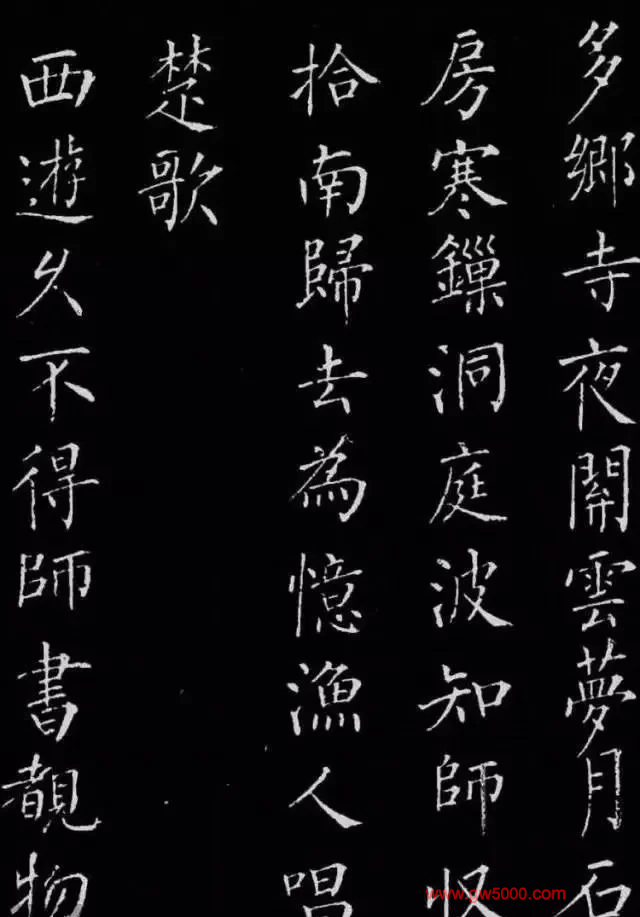 多鄉寺夜開雲夢月石
房寒鏁洞庭波知師収
拾南歸去為憶漁人唱
楚歌
西遊久不得師書覩物
www.gw5000.com